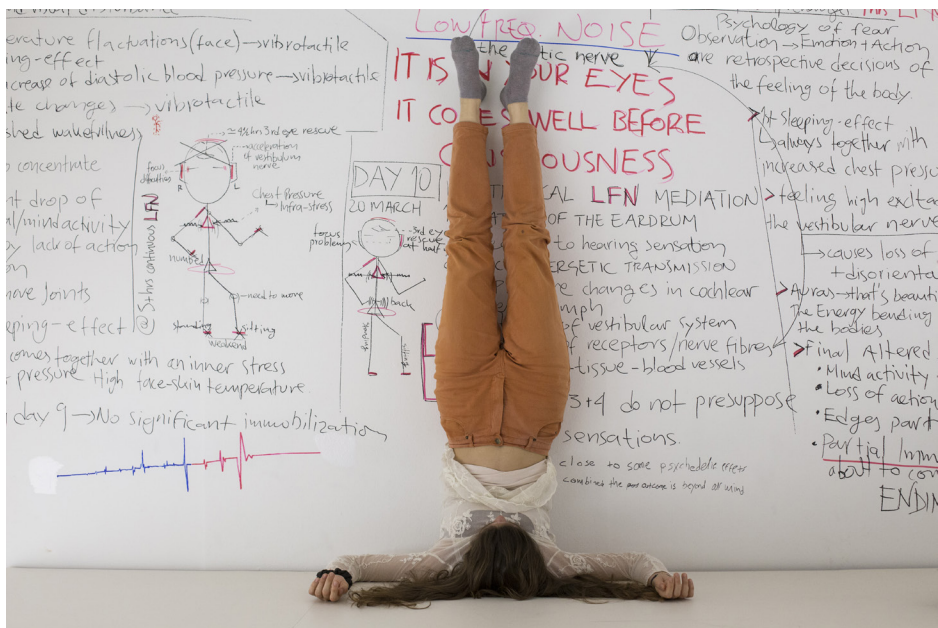 erature fluctuations (face) → vibrotactile
ing-effect
ncrease of diastolic blood pressure → vibrotactile
te changes → vibrotactile
shed wakefulness
concentrate
nt drop of
al/mindactivity
by lack of action
on
move joints
eping-effect
comes together with an inner stress
pressure High face-skin temperature
day 9 → No significant immobilization
5+hrs continuous LFN
3rd eye rescue
acceleration
of vestibulum
nerve
focus
difficulties
R
L
Chest Pressure
Infra-stress
numbed
need to move
standing
sitting
weakend
DAY 10
20 MARCH
focus
problem
3rd eye
rescue
at half
back
standing
sitting
LOW/FREQ. NOISE
the tic nerve
IT IS N YOUR EYES
IT CO ES WELL BEFORE
CON IOUSNESS
CAL LFN MEDIATION
OF THE EARDRUM
to hearing sensation
ERGETIC TRANSMISSION
e changes in cochlear
mph
of vestibular system
of receptors/nerve fibres
-tissue - blood vessels
3+4 do not presuppose
sensations.
close to some psychedelic effects
combined the outcome is beyond all mind
this LFN
Psychology of fear
Observation → Emotion + Action
are retrospective decisions of
the feeling of the body.
At sleeping-effect
always together with
increased chest pressu
feeling high excita
the vestibular nerve
causes loss of
+ disorienta
Auras → that's beauti
The Energy bending
the bodies
Final Altered
• Mind activity
• Loss of action
• Edges part
• Partial Imm
about to con
ENDIN